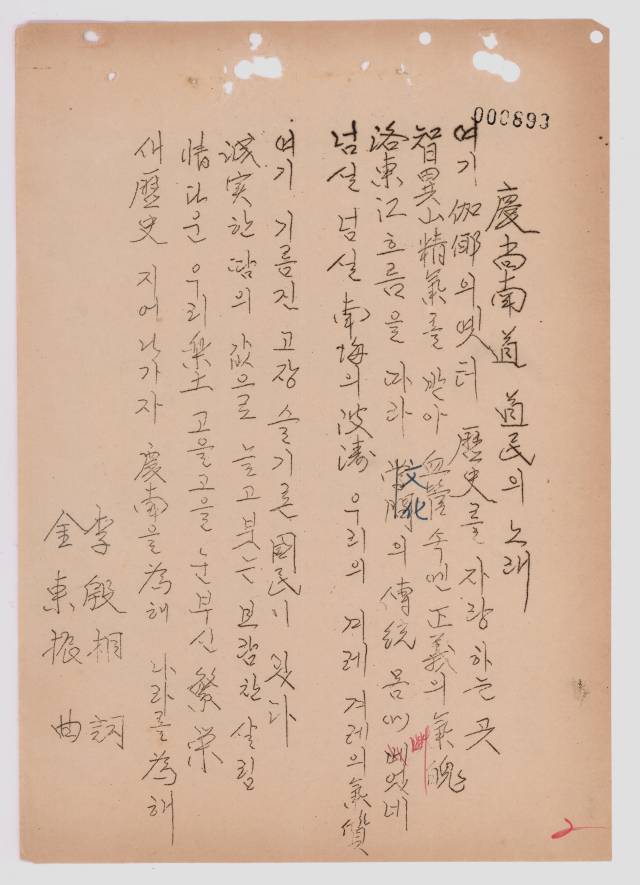 000893
慶尙南道 道民의 노래
여기 伽倻의 옛터 歷史를 자랑하는 곳
智異山 精氣를 받아 血管 속엔 正義의 氣魄
洛東江 흐름을 따라 文化의 傳統 몸에 배었네
넘실 넘실 南海의 波濤 우리의 겨레 겨레의 氣償
여기 기름진 고장 슬기론 國民이 있다
誠実한 땀의 값으로 늘고 붇는 보람찬 살림
情다운 우리 楽土 고을고을 눈부신 繁栄
새 歷史 지어 나가자 慶南을 為해 나라를 為해
李殷相 詞
金東振 曲
2